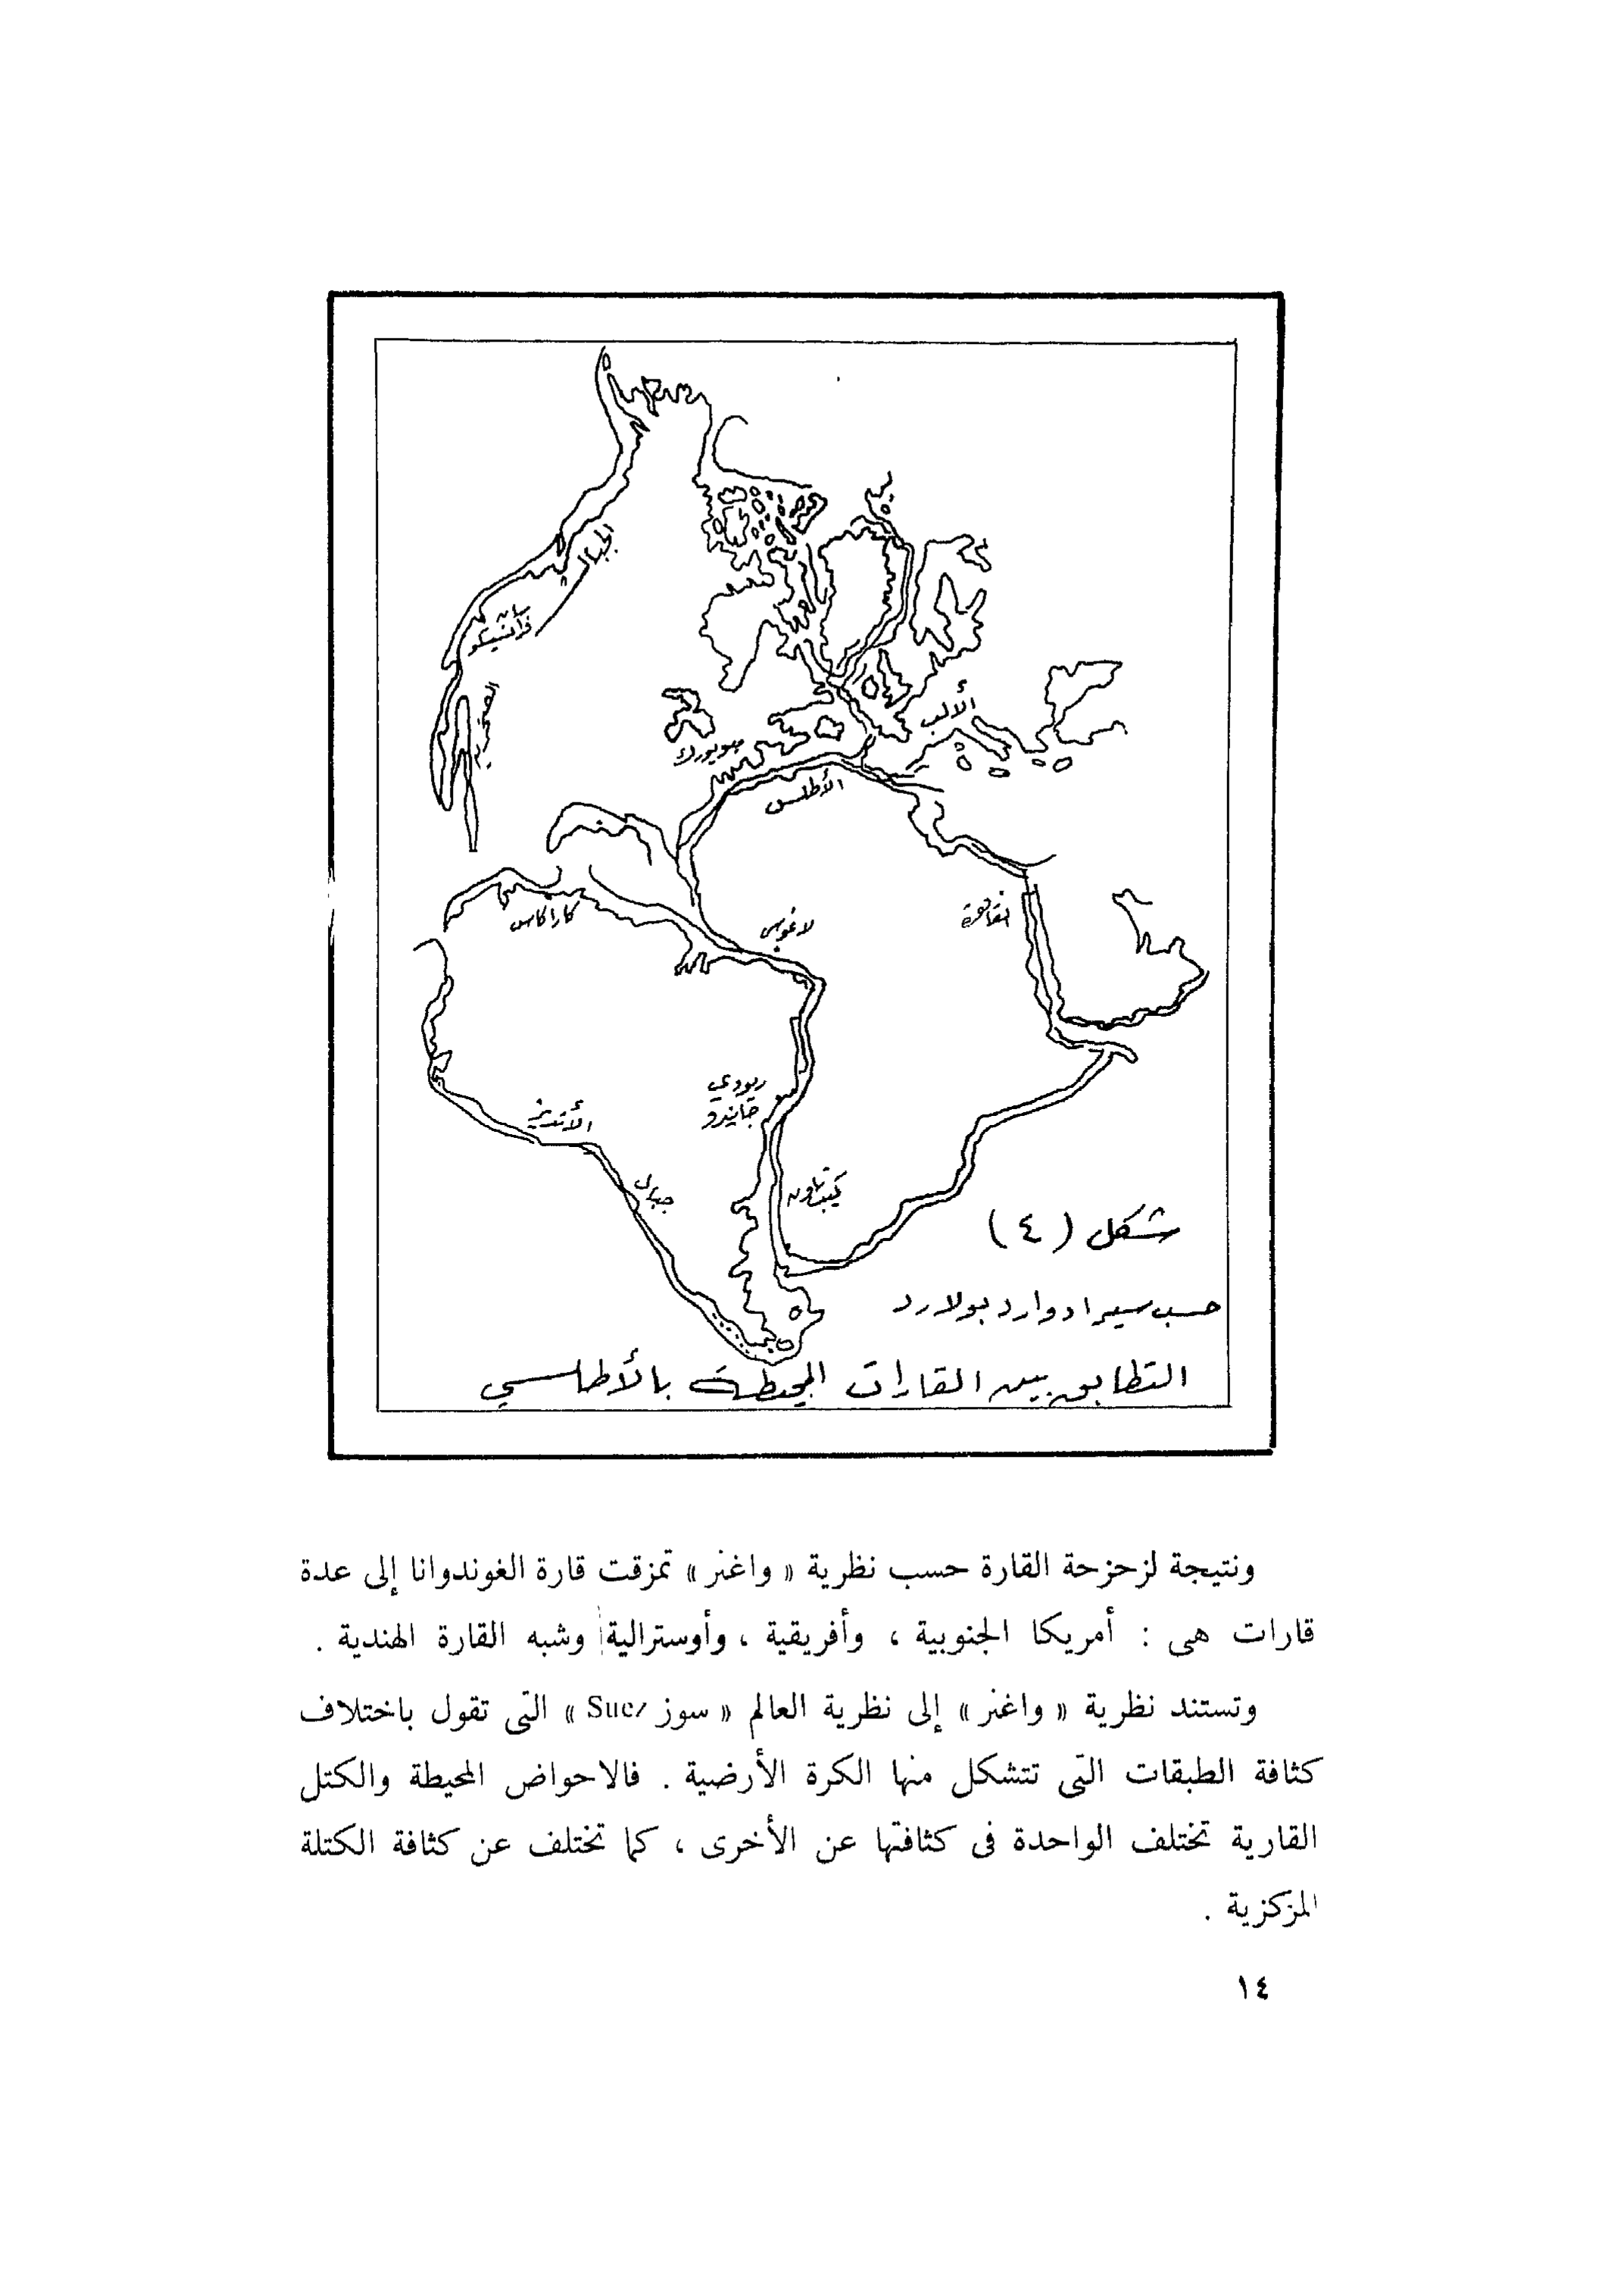 الجبال
سان
فرانسيسكو
الصخرية
الألب
نيويورك
الأطلس
كاراكاس
لاغوس
القاهرة
ريودي
جانيرو
الأنديز
جبال
كيبتاون
شكل (٤)
حسب سير ادوارد بولارد
التطابق بين القارات المحيطة بالأطلسي
ونتيجة لزحزحة القارة حسب نظرية « واغنر » تمزقت قارة الغوندوانا إلى عدة
قارات هى : أمريكا الجنوبية ، وأفريقية ، وأوسترالية وشبه القارة الهندية .
وتستند نظرية « واغنر » إلى نظرية العالم « سوز Suez » التى تقول باختلاف
كثافة الطبقات التى تتشكل منها الكرة الأرضية . فالاحواض المحيطة والكتل
القارية تختلف الواحدة فى كثافتها عن الأخرى ، كما تختلف عن كثافة الكتلة
المركزية .
١٤